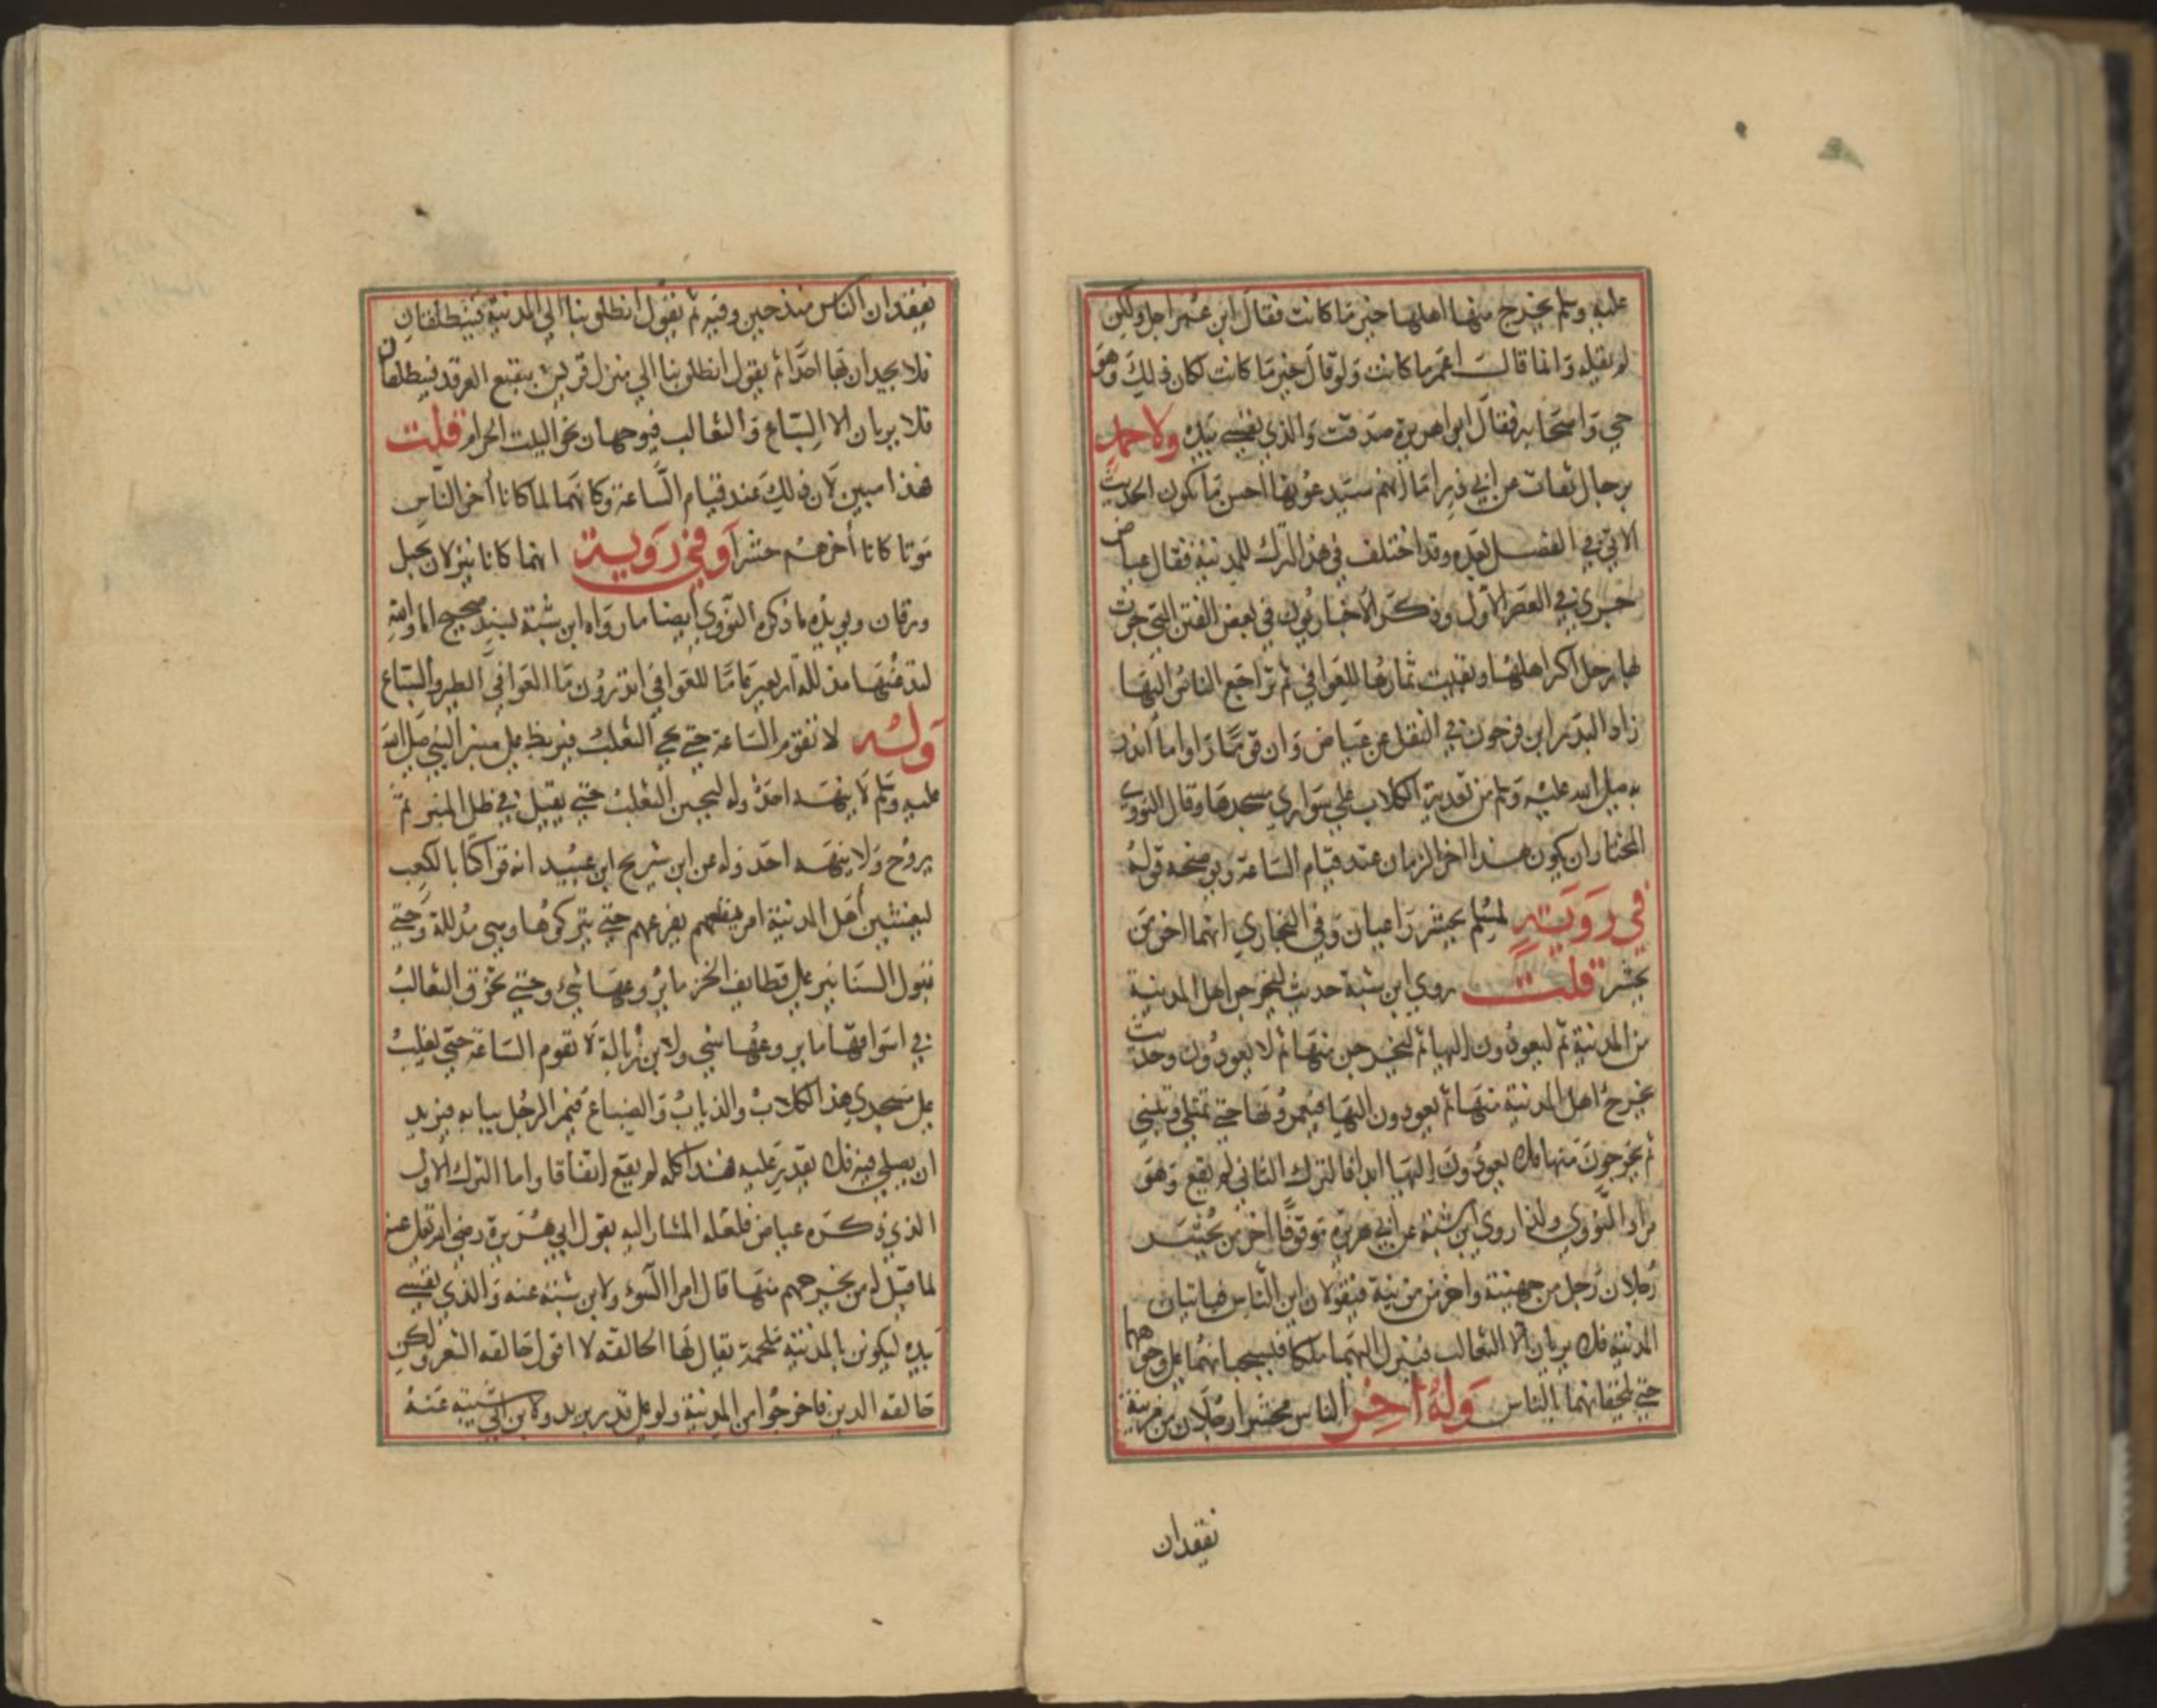 عليه وسلم يخرج منها اهلها خير ما كانت فقال ابن عمر اجل ولكن
لم يقله وانما قالــ اعمر ما كانت ولو قال خير ما كانت لكان ذلك وهو
حي واصحابه فقال ابو هريرة صدقت والذي نفسي بيده ولاحمد
برجال ثقات عن ابي ذر اما انهم سيدعونها احسن ما تكون الحديث
الاتي في الفصل بعده وقد اختلف في هذا الترك للمدينة فقال عياض
جري في العصر الاول وذكر الاخباريون في بعض الفتن التي جرت
بها رحل اكثر اهلها وبقيت ثمارها للعوافي ثم تراجع الناس اليها
زاد البدر ابن فرحون في النقل عن عياض وان قوما راوا ما انذر
به صلي الله عليه وسلم من تغدية الكلاب علي سواري مسجدها وقال النووي
المختار ان يكون هذا اخر الزمان عند قيام الساعة ويوضحه قوله
في روية لمسلم يحشر راعيان وفي البخاري انهما اخر من
يحشر قلتــ روي ابن شبة حديث ليخرجن اهل المدينة
من المدينة ثم ليعودون اليها ثم ليخرجن منها ثم لا يعودون وحديث
يخرج اهل المدينة منها ثم يعودون اليها فيعمرونها حتي تمتلي وتبني
ثم يخرجون منها فلا يعودون اليها ابدا فالترك الثاني لم يقع وهو
مراد النووي ولذا روي ابن شبة عن ابي هريرة موقوفا اخر من يحشر
رجلان رجل من جهينة واخر من مزينة فيقولان اين الناس فياتيان
المدينة فلا يريان الا الثعالب فينزل اليهما ملكا فيسحبانهما علي وجوههما
حتي يلحقانهما بالناس وله اخر الناس محشرا رجلان من مزينة
نفقدان
يفقدان الناس فيقول ثم يقول انطلق بنا الي المدينة فينطلقان
فلا يجدان بها احدا ثم يقول انطلق بنا الي منزل قريش ببقيع الغرقد فينطلقان
فلا يريان الا السباع والثعالب فيوجهان نحو البيت الحرام قلت
هذا مبين لان ذلك عند قيام الساعة وكانهما لما كانا اخر الناس
موتا كانا اخرهم حشرا وفي روية انهما كانا ينزلان بجبل
ورقان ويويده ما ذكره النووي ايضا ما رواه ابن شبة بسند صحيح اما والله
لتدعنها مذللة اربعين عاما للعوافي اتدرون ما العوافي الطير والسباع
وله لا تقوم الساعة حتي يجي الثعلب فيربض علي منبر النبي صلي الله
عليه وسلم لا ينهه احد وله ليجين الثعلب حتي يقيل في ظل المنبر ثم
يروح ولا ينهه احد وله عن ابن شريح ابن عبيد انه قرا كتابا لكعب
ليغشين اهل المدينة امر يفزعهم حتي يتركوها وهي مذللة وحتي
تبول السنانير علي قطايف الخز ما يروعها شيء وحتي تخرق الثعالب
في اسواقها ما يروعها شي ولابن زبالة لا تقوم الساعة حتي يغلب
علي مسجدي هذا الكلاب والذياب والضباع فيمر الرجل ببابه فيريد
ان يصلي فيه فلا يقدر عليه هذا كله لم يقع اتفاقا واما الترك الاول
الذي ذكره عياض فلعله المشار اليه بقول ابي هريرة رضي الله تعلي عنه
لما قيل له من يخرجهم منها قال امرا السوء ولابن شبة عنه والذي نفسي
بيده ليكونن بالمدينة ملحمة يقال لها الحالقة لا اقول حالقه الشعر ولكن
حالقه الدين فاخرجوا من المدينة ولو علي قدر بريد ولابن ابي شيبة عنه